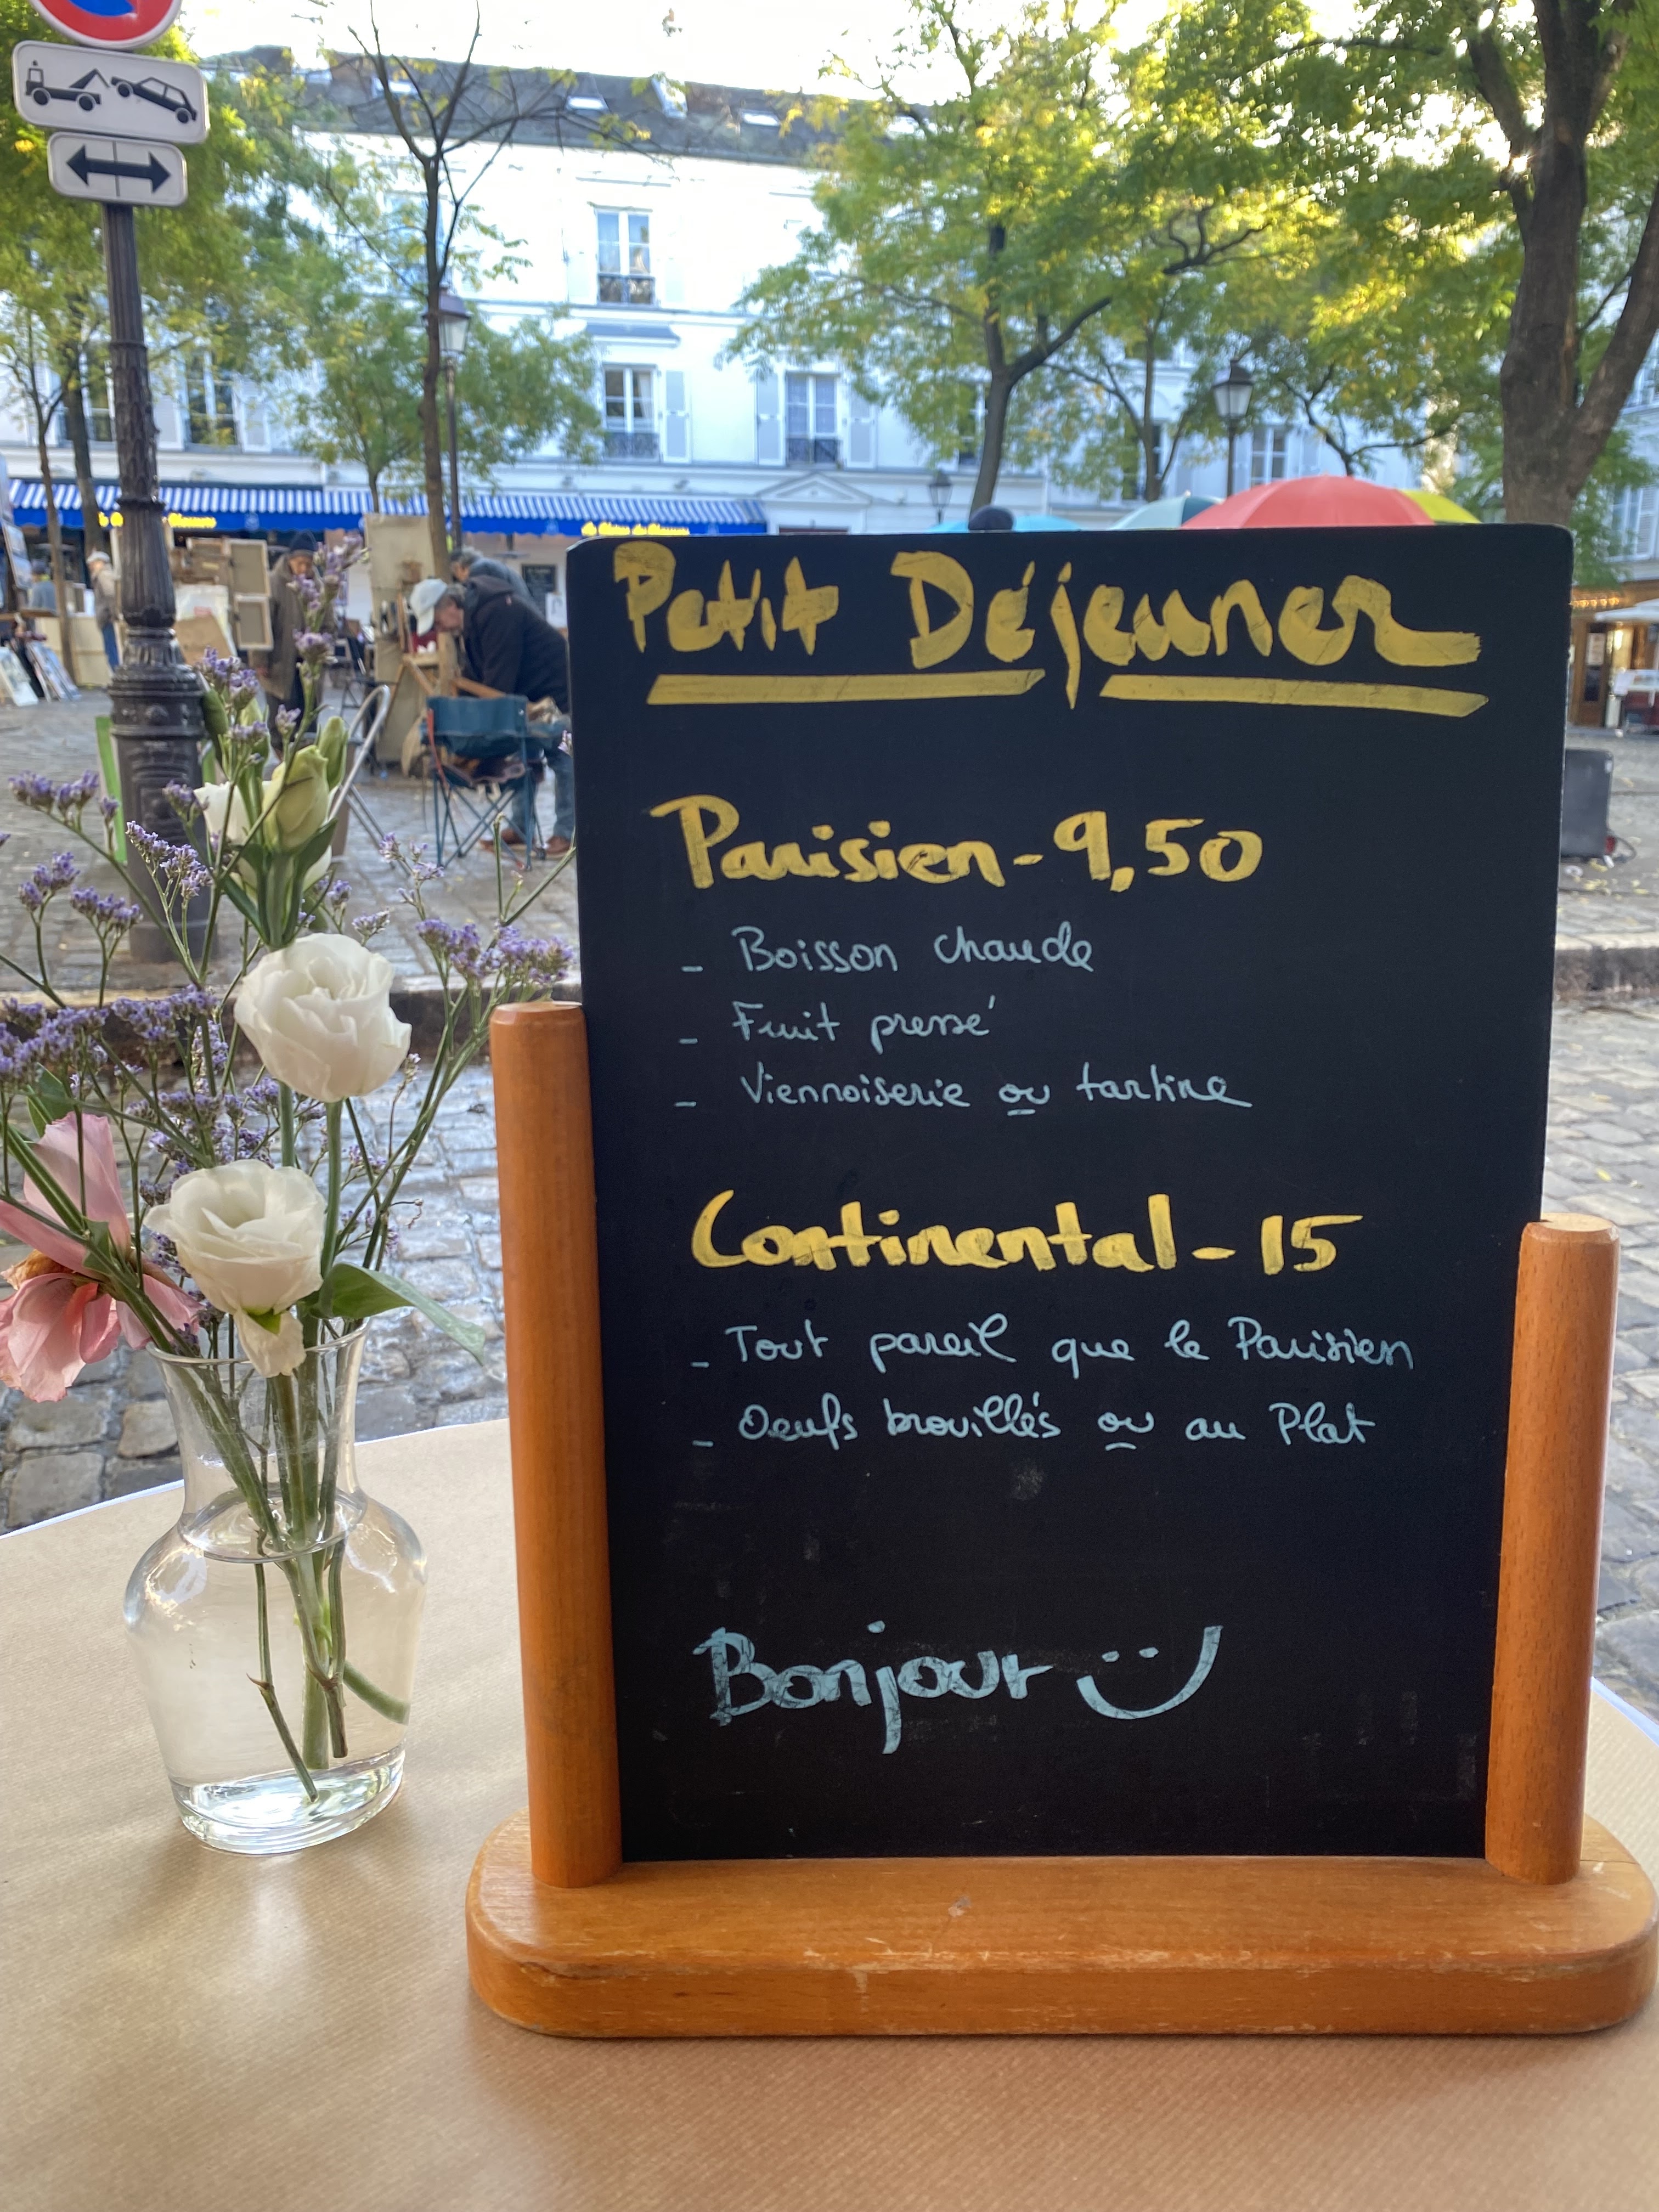 Petit Déjeuner
Parisien - 9,50
- Boisson chaude
- Fruit pressé
- Viennoiserie ou tartine
Continental - 15
- Tout pareil que le Parisien
- Oeufs brouillés ou au Plat
Bonjour